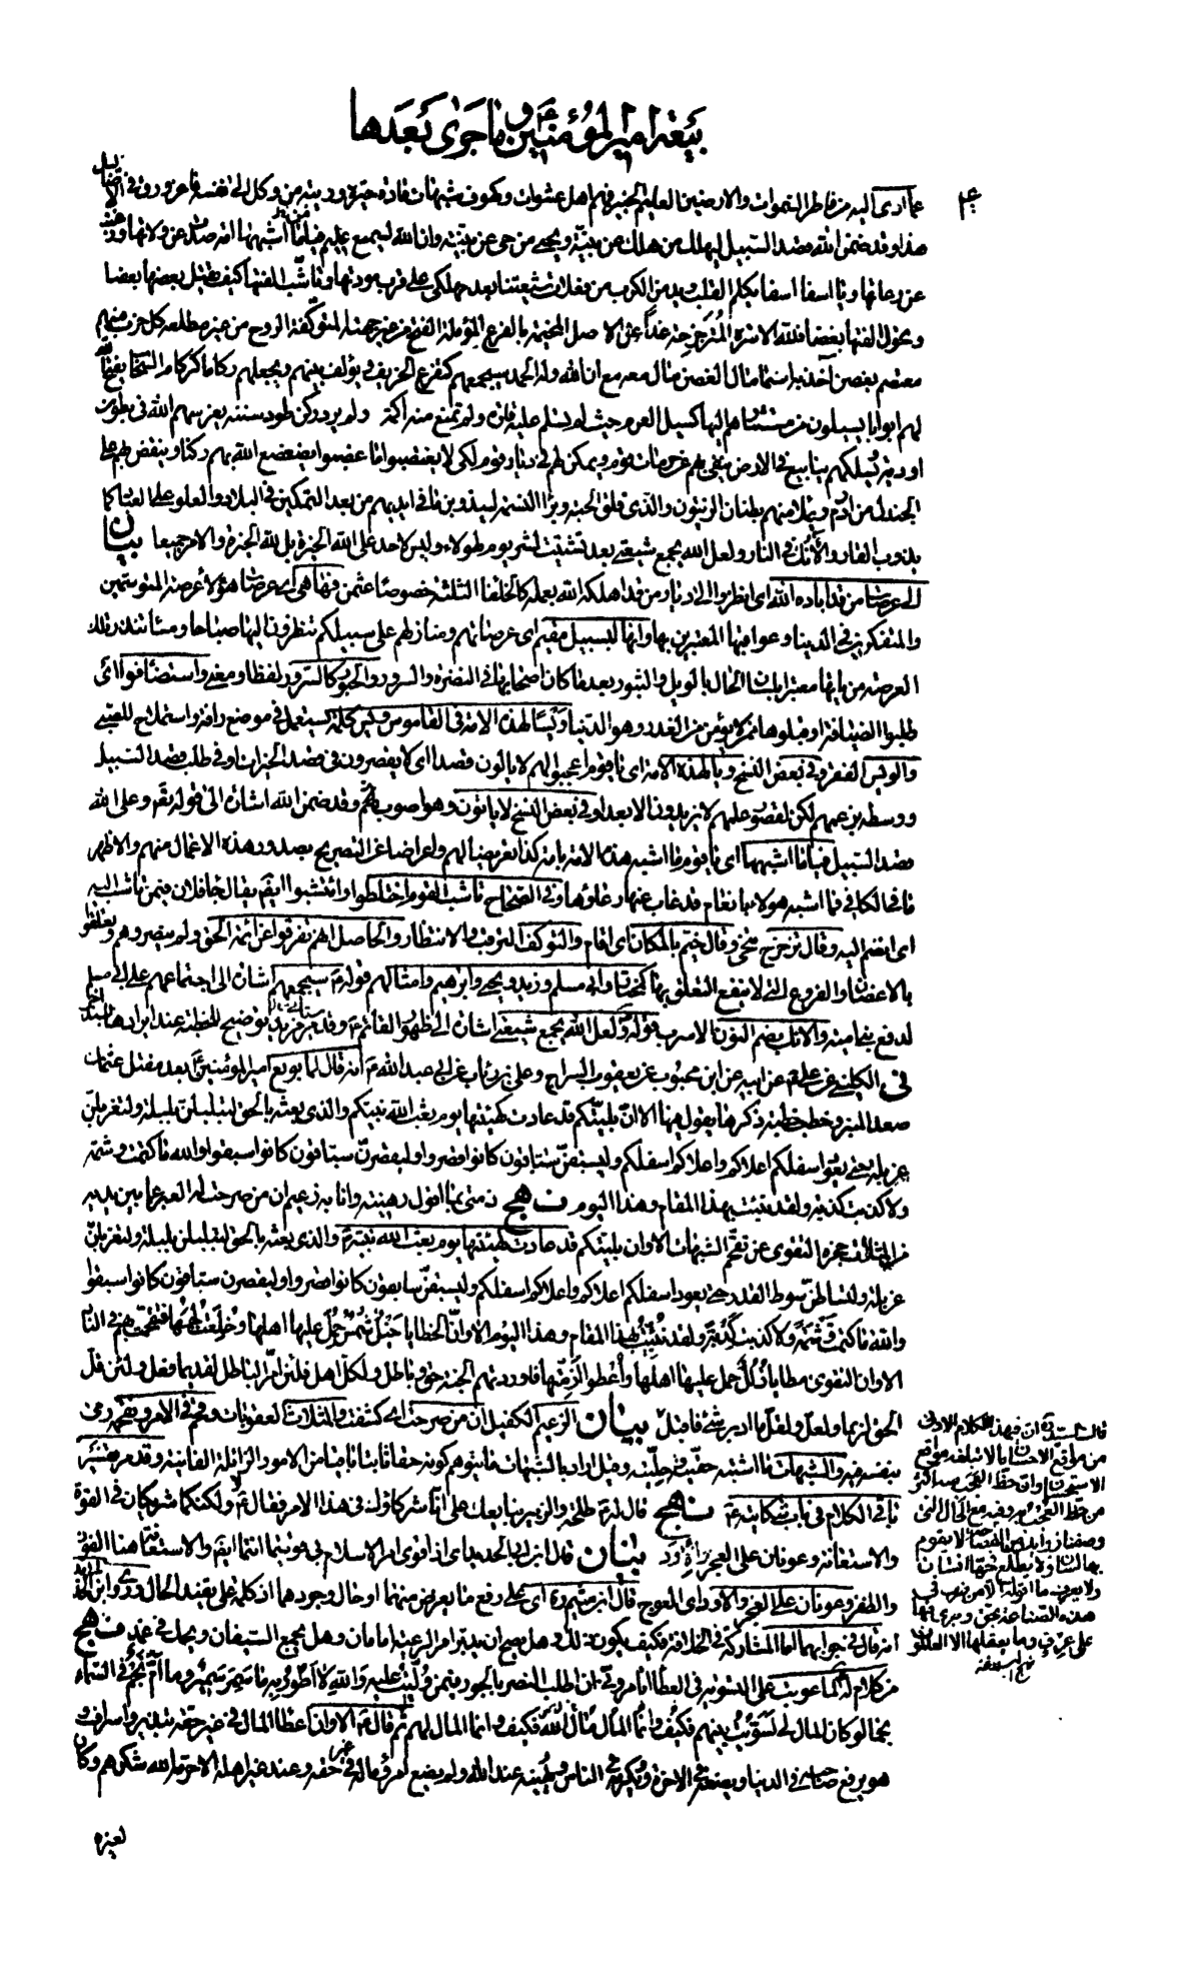 بيعة امير المؤمنين و ما جرى بعدها
عما ادى اليه من فاطر السموات والارضين العليم الخبير فهم اهل عشوات وكهوف شبهات قادة حيرة وريبة من وكل الى نفسه فاغرورق فى الاضاليل
هذا وقد ضمن الله قصد السبيل ليهلك من هلك عن بينة ويحيى من حى عن بينة وان الله لسميع عليم فيا ما اشبهها امة صدت عن ولاتها ورغبت
عن رعاتها ويا اسفا اسفا يكلم القلب ويدمن الكرب من فعلات شيعتنا بعد مهلكى على قرب مودتها وتاشب الفتها كيف يقتل بعضها بعضا
وتحول الفتها بغضا فلله الاسرة المتزحزحة غدا عن الاصل المخيمة بالفرع المؤملة الفتح من غير جهته المتوكفة الروح من غير مطلعه كل حزب منهم
معتصم بغصن آخذ به اينما مال الغصن مال معه مع ان الله وله الحمد سيجمعهم كقزع الخريف ويؤلف بينهم ويجعلهم ركاما كركام السحاب يفتح الله
لهم ابوابا يسيلون من مستثارهم اليها كسيل العرم حيث لم تسلم عليه قارة ولم تمنع منه اكمة ولم يرد ركن طود سننه يغرسهم الله فى بطون
اودية يسلكهم ينابيع فى الارض ينفى بهم عن حرمات قوم ويمكن لهم فى ديار قوم لكى لا يغتصبوا ما غصبوا يضعضع الله بهم ركنا وينقض بهم على
الجندل من ارم ويملا منهم بطنان الزيتون والذى فلق الحبة وبرا النسمة ليذوبن ما فى ايديهم من بعد التمكين فى البلاد والعلو على العباد كما
يذوب القار والآنك فى النار ولعل الله يجمع شيعتى بعد تشتيت لشر يوم لهؤلاء وليس لاحد على الله الخيرة بل لله الخيرة والامر جميعا بيان
الى عرصات من قد اباده الله اى انظروا الى ديار من قد اهلكه الله بعمله كالخلفاء الثلثة خصوصا عثمن فها هى اى عرصات هؤلاء عرصة المتوسمين
والمتفكرين فى الدنيا وعواقبها المعتبرين بها وانها لبسبيل مقيم اى عرصاتهم ومنازلهم على سبيلكم تنظرون اليها صباحا ومساء تنذر تلك
العرصة من يابها معتبرا بلسان الحال بالويل والثبور بعد ما كان اصحابها فى النضرة والسرور والحبور كالسرور لفظا ومعنى واستضافوا اى
طلبوا الضيافة او قبلوها ممن لا يؤمن من الغدر وهو الدنيا ويسا لهذه الامة فى القاموس ويس كلمة تستعمل فى موضع رافة واستملاح للصبى
والويس الفقر وفى بعض النسخ ويا لهذه الامة اى يا قوم اعجبوا لهم لا يالون قصدا اى لا يقصرون فى قصد الخيرات او فى طلب قصد السبيل
ووسطه بزعمهم لكن لقصور علمهم لا يزيدون الا بعدا وفى بعض النسخ لا ياتون وهو اصوب وقد ضمن الله اشارة الى قوله تعالى وعلى الله
قصد السبيل فيا ما اشبهها اى يا قوم ما اشبه هذه الامة بامة كذا تعريضا لهم واعراضا عن التصريح بصدور هذه الاعمال منهم والاظهر
ما فى الكافى فما اشبه هؤلاء بانعام قد غاب عنها رعاؤها وفى الصحاح تاشب القوم اختلطوا وائتشبوا ايضا يقال جاء فلان فيمن تاشب اليه
اى انضم اليه وقال تزحزح تنحى وقال خيم بالمكان اى اقام والتوكف الترقب والانتظار والحاصل انهم تفرقوا عن ائمة الحق ولم ينصروهم وتعلقوا
بالاغصان والفروع التى لا ينفع التعلق بها كمختار وابى مسلم وزيد ويحيى وابرهيم وامثالهم قوله سيجمعهم اشارة الى اجتماعهم على ابى مسلم
لدفع بنى امية والآنك بضم النون الاسرب قوله ولعل الله يجمع شيعتى اشارة الى ظهور القائم وقد مر مزيد توضيح للخطبة عند ايرادها
فى الكلينى عن على عن ابيه عن ابن محبوب عن يعقوب السراج وعلى بن رئاب عن ابى عبد الله انه قال لما بويع امير المؤمنين بعد مقتل عثمان
صعد المنبر وخطب خطبة ذكرها يقول فيها الا ان بليتكم قد عادت كهيئتها يوم بعث الله نبيكم والذى بعثه بالحق لتبلبلن بلبلة ولتغربلن
غربلة حتى يعود اسفلكم اعلاكم واعلاكم اسفلكم وليسبقن سباقون كانوا قصروا وليقصرن سباقون كانوا سبقوا والله ما كتمت وشمة
ولا كذبت كذبة ولقد نبئت بهذا المقام وهذا اليوم نهج ذمتى بما اقول رهينة وانا به زعيم ان من صرحت له العبر عما بين يديه
من المثلات حجزه التقوى عن تقحم الشبهات الا وان بليتكم قد عادت كهيئتها يوم بعث الله نبيه والذى بعثه بالحق لتبلبلن بلبلة ولتغربلن
غربلة ولتساطن سوط القدر حتى يعود اسفلكم اعلاكم واعلاكم اسفلكم وليسبقن سابقون كانوا قصروا وليقصرن سباقون كانوا سبقوا
والله ما كتمت وشمة ولا كذبت كذبة ولقد نبئت بهذا المقام وهذا اليوم الا وان الخطايا خيل شمس حمل عليها اهلها وخلعت لجمها فتقحمت بهم فى النار
الا وان التقوى مطايا ذلل حمل عليها اهلها واعطوا ازمتها فاوردتهم الجنة حق وباطل ولكل اهل فلئن امر الباطل لقديما فعل ولئن قل
الحق لربما ولعل ولقلما ادبر شىء فاقبل بيان الزعيم الكفيل ان من صرحت اى كشفت والمثلات العقوبات وقحم فى الامر وتقحمه رمى
بنفسه فيه والشبهات ما اشتبه حقيته وحليته وقيل اراد بالشبهات ما يتوهم كونه حقا ثابتا باقيا من الامور الزائلة الفانية وقد مر تفسير
باقى الكلام فى باب شكايته نهج قال له طلحة والزبير نبايعك على انا شركاؤك فى هذا الامر فقال لا ولكنكما شريكان فى القوة
والاستعانة وعونان على العجز والاود بيان قال ابن ابى الحديد اى اذا قوى امر الاسلام بى قويتما انتما ايضا والاستعانة هنا الفوز
والظفر وعونان على العجز والاود اى العوج قال ابن ميثم اى على رفع ما يعرض منهما او حال وجودهما اذ كلمة على يفيد الحال
انه قال فى جوابهما اما المشاركة فى الخلافة فكيف يكون ذلك وهل يصح ان يدبر امر الرعية امامان وهل يجمع السيفان ويحك فى غمد نهج
من كلام له لما عوتب على التسوية فى العطاء اتامرونى ان اطلب النصر بالجور فيمن وليت عليه والله لا اطور به ما سمر سمير وما ام نجم فى السماء
نجما لو كان المال لى لسويت بينهم فكيف وانما المال مال الله فكيف وانما المال لهم ثم قال الا وان اعطاء المال فى غير حقه تبذير واسراف و
هو يرفع صاحبه فى الدنيا ويضعه فى الاخرة ويكرمه فى الناس ويهينه عند الله ولم يضع امرؤ ماله فى غير حقه وعند غير اهله الا حرمه الله شكرهم وكان
لغيره